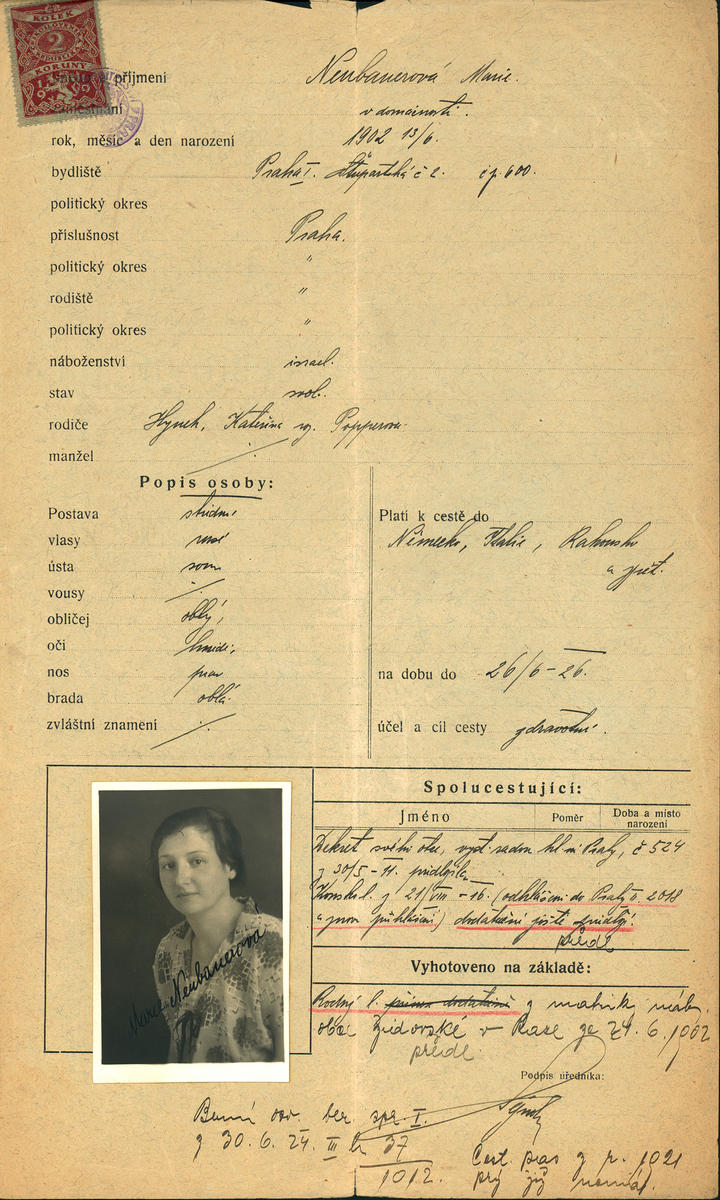 KOLEK
2
KORUNY
1919
příjmení Neubauerová Marie.
v domácnosti.
rok, měsíc a den narození 1902 13/6.
bydliště Praha I. Štupartská č 2. čp. 600.
politický okres
příslušnost Praha.
politický okres "
rodiště "
politický okres "
náboženství israel.
stav svob.
rodiče Hynek, Kateřina roz. Popperova
manžel
Popis osoby:
Postava střední
vlasy
ústa
vousy
obličej oblý
oči hnědé
nos prav
brada oblá
zvláštní znamení
Platí k cestě do
Německo, Italie, Rakousko
a zpět.
na dobu do 26/6-26.
účel a cíl cesty zdravotní.
Spolucestující:
Jméno Poměr Doba a místo narození
Dekret svého otce, vyst. radou hl. m. Prahy, č 524
z 30/5-11. předložila
z 21/VIII-16. (odhlášení do Prahy 2018
a znovu přihlášení) dodatečně ještě předloží!
předl
Vyhotoveno na základě:
Rodný l. z matrik náb.
obce židovské v Praze ze 24.6.1902
předl.
Podpis úředníka:
Marie Neubauerová
Berní
z 30.6.24. III 37
1012.
Cest. pas z r. 1921
prý již nemá.